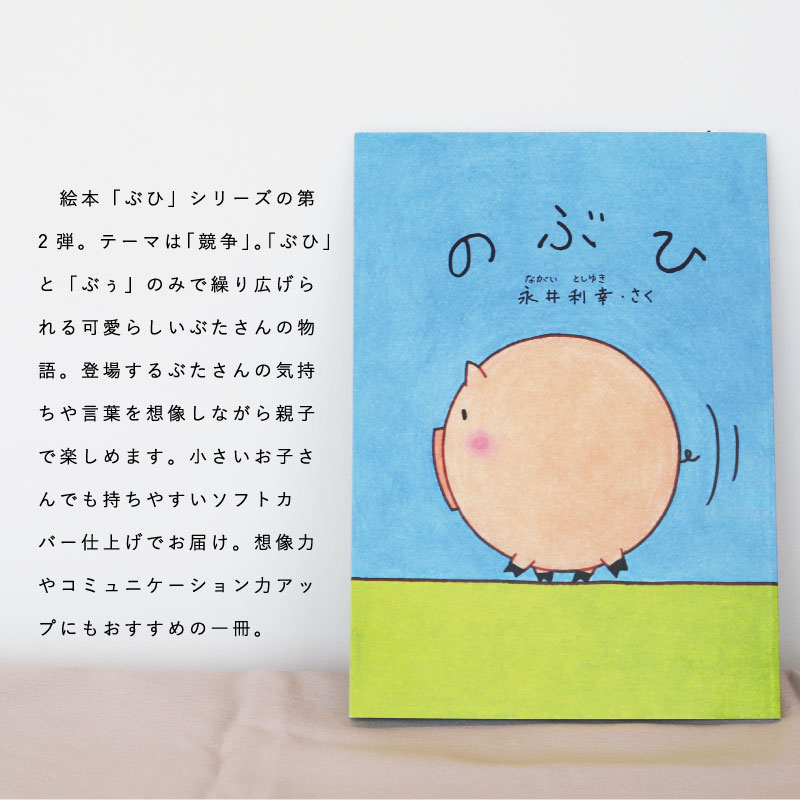 絵本「ぶひ」シリーズの第
2弾。テーマは「競争」。「ぶひ」
と「ぶぅ」のみで繰り広げら
れる可愛らしいぶたさんの物
語。登場するぶたさんの気持
ちや言葉を想像しながら親子
で楽しめます。小さいお子さ
んでも持ちやすいソフトカ
バー仕上げでお届け。想像力
やコミュニケーション力アッ
プにもおすすめの一冊。
のぶひ
ながい としゆき
永井利幸・さく